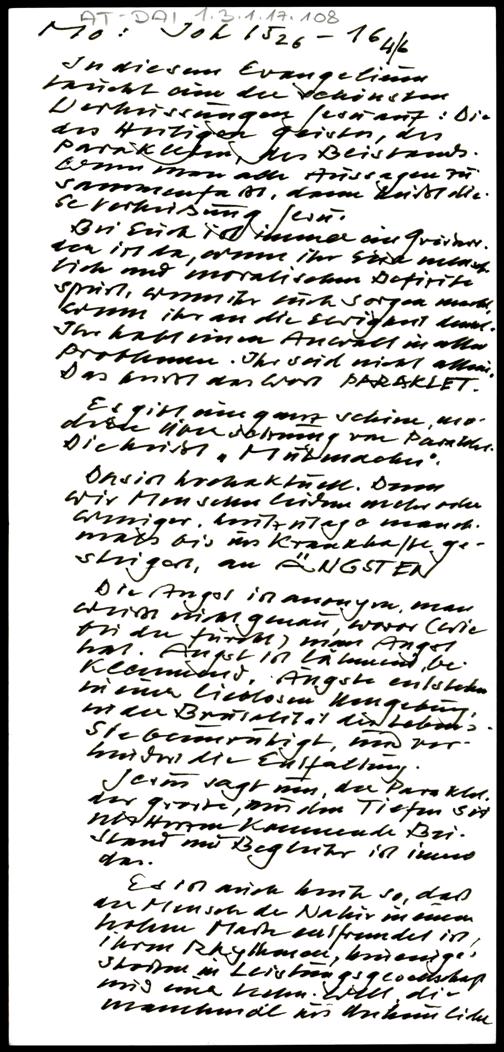 AT-DAI 1.3.1.17.108
Mo: Joh 15 26 - 16 4/6
In diesem Evangelium
taucht eine der schönsten
Verheissungen Jesu auf: Die
des Heiligen Geistes, des
Parakleten, des Beistands.
Wenn man alle Aussagen zu
sammenfasst, dann heisst die-
se Verheissung Jesu:
Bei Euch ist immer ein
den ist da, wenn ihr Eure mensch
lich und moralischen Defizite
spürt, wenn ihr euch Sorgen macht,
wenn ihr an die Ewigkeit denkt.
Ihr habt einen Anwalt in allen
Problemen. Ihr seid nicht allein.
Das heisst das Wort PARAKLET.
Es gibt eine ganz schöne, mo-
derne Übersetzung von Paraklet.
Die heisst "Mutmacher".
Das ist hochaktuell. Denn
wir Menschen leiden mehr oder
weniger, heutzutage manch-
mals bis ins Krankhafte ge-
steigert, an ÄNGSTEN
Die Angst ist anonym, man
weiss nicht genau, wovor (wie
bei der Furcht) man Angst
hat. Angst ist lähmend, be-
klemmend. Ängste entstehen
in einer lieblosen Umgebung,
in der Brutalität des Lebens.
Sie beunruhigt, und ver-
hindert die Entfaltung.
Jesus sagt nun, der Paraklet,
der grosse, aus den Tiefen
des Herrn kommende Bei-
stand und Begleiter ist immer
da.
Es ist auch heute so, dass
der Mensch der Natur in einem
hohen Mass entfremdet ist,
ihrem Rhythmus,
in Leistungsgesellschaft
und einer Welt, die
manchmal ins Unheimliche